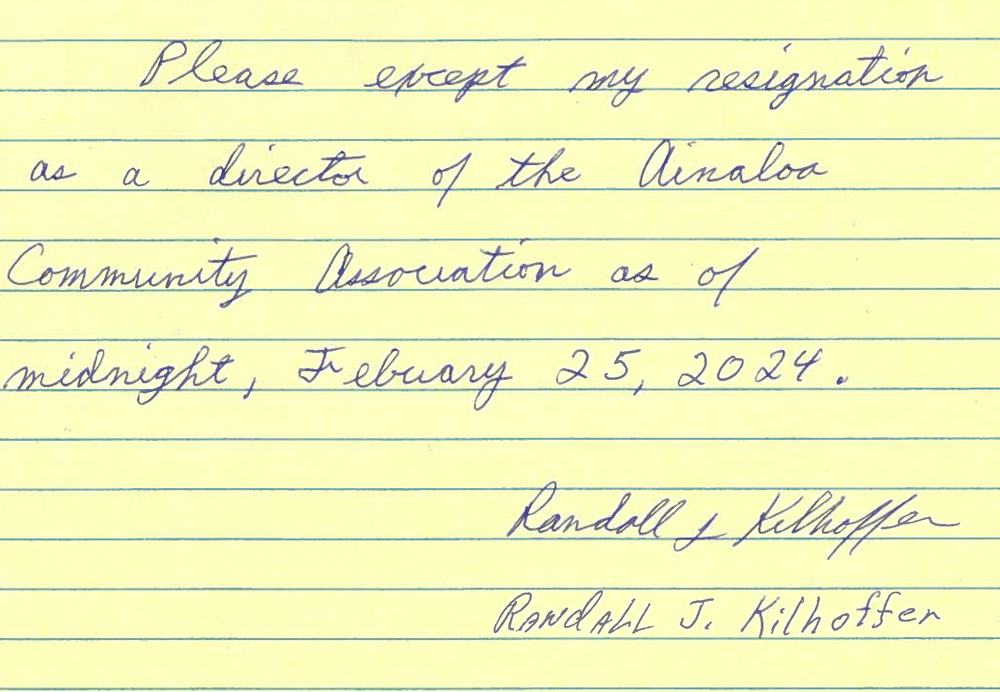 Please except my resignation
as a director of the Ainaloa
Community Association as of
midnight, Febuary 25, 2024.
Randall J Kilhoffer
RANDALL J. Kilhoffer